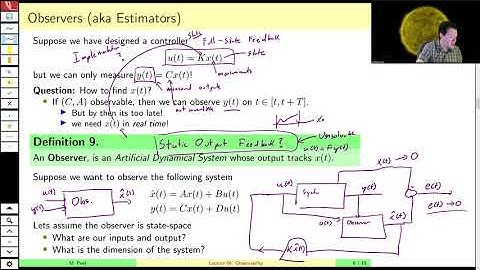 Observers (aka Estimators)
Suppose we have designed a controller
State
Full-State Feedback
Implementation?
u(t) = Kx(t)
state
but we can only measure y(t) = Cx(t)!
measured output
Question: How to find x(t)?
• If (C, A) observable, then we can observe y(t) on t ∈ [t, t + T].
▶ But by then its too late!
▶ we need x(t) in real time!
Definition 9.
Static Output Feedback?
u(t)=Fy(t)
An Observer, is an Artificial Dynamical System whose output tracks x(t).
Suppose we want to observe the following system
u(t)
y(t)
Obs.
x̂(t)
ẋ(t) = Ax(t) + Bu(t)
y(t) = Cx(t) + Du(t)
Lets assume the observer is state-space
• What are our inputs and output?
• What is the dimension of the system?
x(t) → 0
u(t)
y(t)
e(t)
e(t) → 0
u(t)
Observer
x̂(t)
M. Peet
Observability